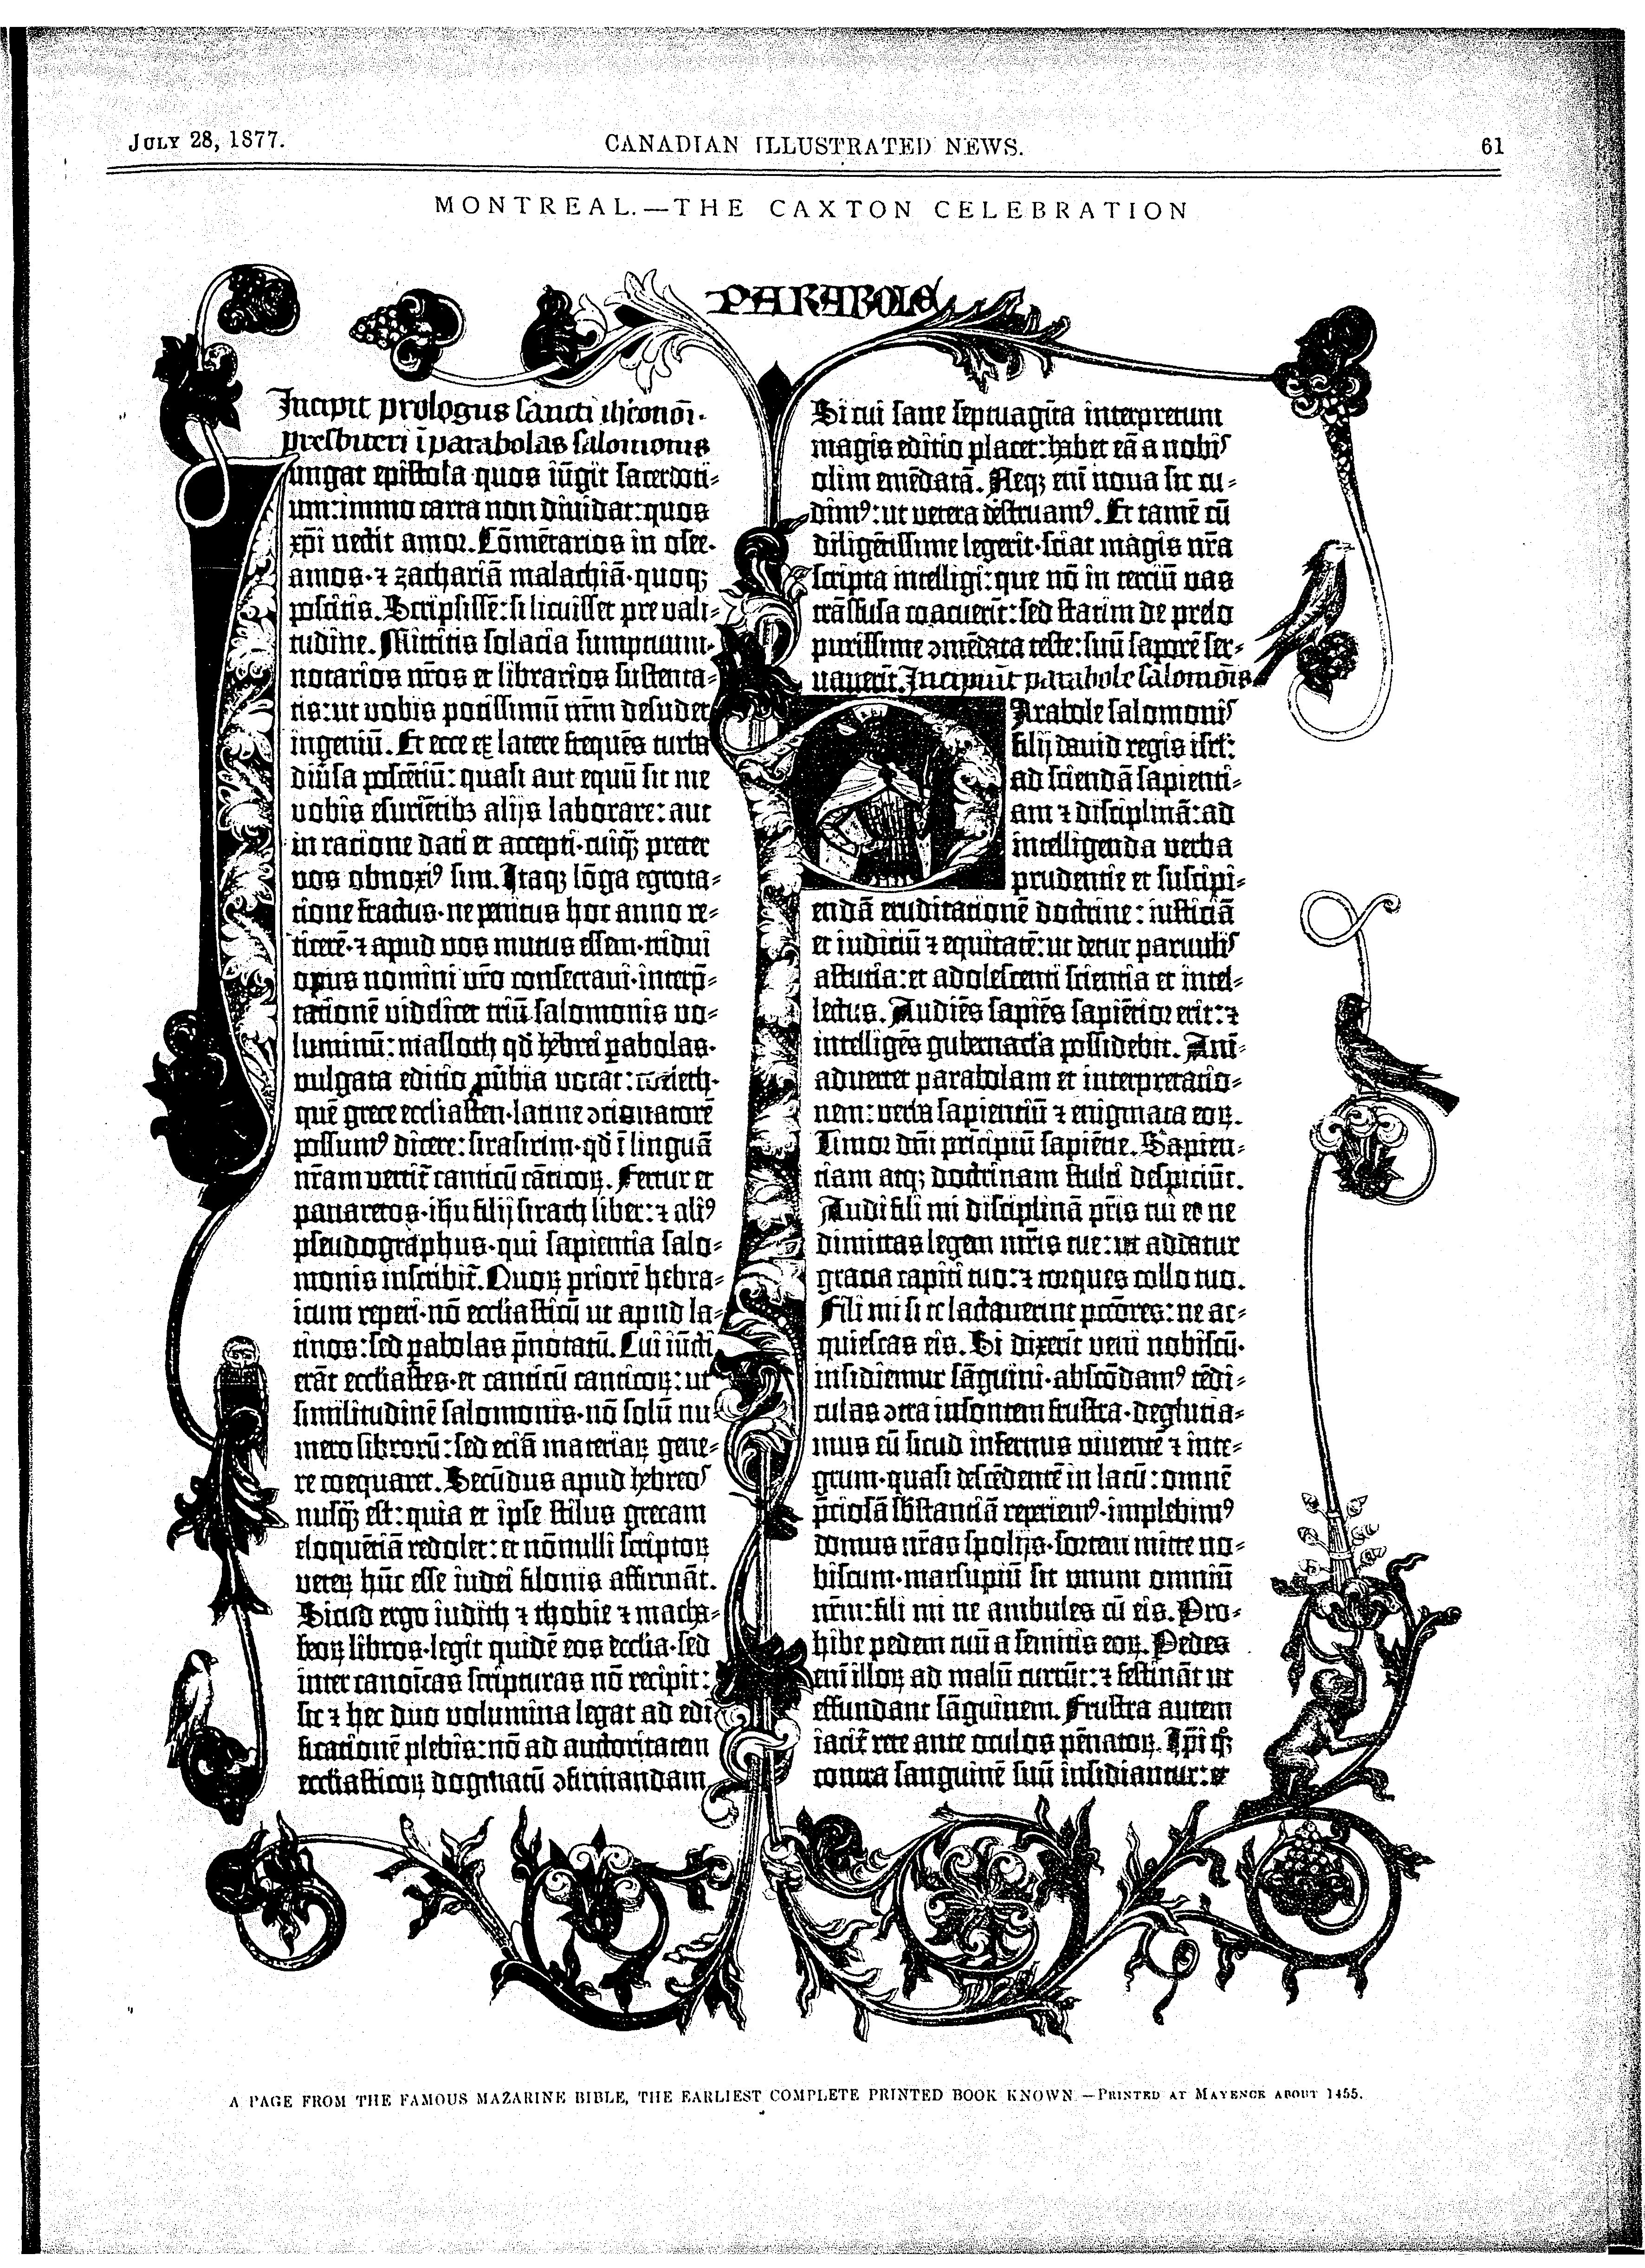 JULY 28, 1877.
CANADIAN ILLUSTRATED NEWS.
61
MONTREAL.—THE CAXTON CELEBRATION
PARABOLE
Incipit prologus sancti iheronimi
presbiteri ī parabolas salomonis
ungat epistola quos iūgit sacerdoti-
um: immo carta non diuidat: quos
xpī nectit amor. Cōmētarios in osee.
amos. ⁊ zachariā malachiā. quoqꝫ
poscitis. Scripsissē: si licuisset pre vali-
tudine. Mittitis solacia sumptuum.
notarios nr̄os et librarios sustenta-
tis: ut vobis potissimū nr̄m desudet
ingeniū. Et ecce ex latere frequēs turba
diūsa poscētiū: quasi aut equū sit me
vobis esuriētibꝫ alijs laborare: aut
in racione dati et accepti. cuiqꝫ̄ preter
vos obnoxiꝰ sim. Itaqꝫ lōga egrota-
tione fractus. ne penitus hoc anno re-
ticerē. ⁊ apud vos mutus essem. tridui
opus nomini vr̄o consecraui. interp̄-
tationē videlicet triū salomonis vo-
luminū: masloth qd̄ hebrei ꝑabolas.
vulgata editio ꝓūbia vocat: coeleth.
quē grece ecclīasten. latine ꝯcionatorē
possumꝰ dicere: sirasirim. qd̄ ī linguā
nr̄am vertit̄ canticū cāticoꝝ. Fertur et
panaretos. ihū filij sirach liber: ⁊ aliꝰ
pseudographus. qui sapientia salo-
monis inscribit̄. Quoꝝ priorē hebra-
icum reperi. nō ecclīasticū ut apud la-
tinos: sed ꝑabolas p̄notatū. Cui iūcti
erāt ecclīastes. et canticū canticoꝝ: ut
similitudinē salomonis. nō solū nu-
mero librorū: sed eciā materiaꝝ gene-
re coequaret. Secūdus apud hebreos
nusqꝫ̄ est: quia et ipse stilus grecam
eloquētiā redolet: et nōnulli scriptoꝝ
veteꝝ hūc esse iudei filonis affirmāt.
Sicud ergo iudith ⁊ thobie ⁊ macha-
beoꝝ libros. legit quidē eos ecclīa. sed
inter canoīcas scripturas nō recipit:
sic ⁊ hec duo volumina legat ad edi-
ficationē plebis: nō ad auctoritatem
ecclīasticoꝝ dogmatū ꝯfirmandam.
Si cui sane septuagīta interpretum
magis editio placet: habet eā a nobis
olim emēdatā. Neqꝫ enī noua sic cu-
dimꝰ: ut vetera destruamꝰ. Et tamē cū
diligētissime legerit. sciat magis nr̄a
scripta intelligi: que nō in terciū vas
trāsfusa coacuerit: sed statim de prelo
purissime ꝯmēdata teste: suū saporē ser-
uauerīt. Incipiūt parabole salomōis
Arabole salomonis
filij dauid regis isrl̄:
ad sciendā sapienti-
am ⁊ disciplinā: ad
intelligenda verba
prudentie et suscipi-
endā eruditationē doctrine: iusticiā
et iudiciū ⁊ equitatē: ut detur paruulis
astutia: et adolescenti scientia et intel-
lectus. Audiēs sapiēs sapiētior erit: ⁊
intelligēs gubernacl̄a possidebit. Ani-
aduertet parabolam et interpretatio-
nem: verba sapientiū ⁊ enigmata eoꝝ.
Timor dn̄i pricipiū sapiētie. Sapien-
tiam atqꝫ doctrinam stulti despiciūt.
Audi fili mi disciplinā pr̄is tui et ne
dimittas legem mr̄is tue: ut addatur
gracia capiti tuo: ⁊ torques collo tuo.
Fili mi si te lactauerint pctōres: ne ac-
quiescas eis. Si dixerīt veni nobiscū.
insidiemur sāguini. abscōdamꝰ tēdi-
culas ꝯtra insontem frustra. deglutia-
mus eū sicud infernus viuentē ⁊ inte-
grum. quasi descēdentē in lacū: omnē
p̄ciosā sb̄stanciā reperiemꝰ. implebimꝰ
domus nr̄as spolijs. sortem mitte no-
biscum. marsupiū sit unum omniū
nr̄m: fili mi ne ambules cū eis. Pro-
hibe pedem tuū a semitis eoꝝ. Pedes
enī illoꝝ ad malū currūt: ⁊ festināt ut
effundant sāguinem. Frustra autem
iacit̄ rete ante oculos pēnatoꝝ. Ipī qꝫ
contra sanguinē suū insidiantur: et
A PAGE FROM THE FAMOUS MAZARINE BIBLE, THE EARLIEST COMPLETE PRINTED BOOK KNOWN.—PRINTED AT MAYENCE ABOUT 1455.